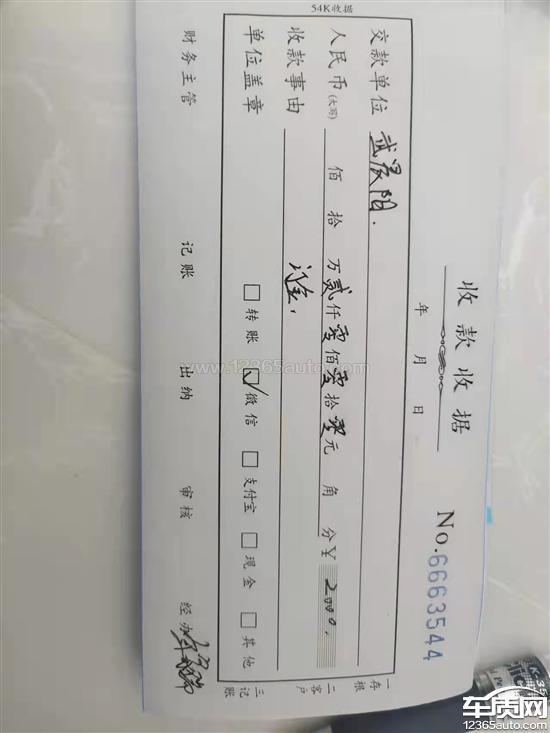 54K收据
收款收据
No.6663544
年 月 日
交款单位 武晨阳.
人民币(大写) 佰 拾 万贰仟零佰零拾零元 角 分 ¥ 2000.
收款事由 订金,
□转账 ☑微信 □支付宝 □现金 □其他
单位盖章
财务主管 记账 出纳 审核 经办
一存根 二客户 三记账
www.12365auto.com
车质网
12365auto.com